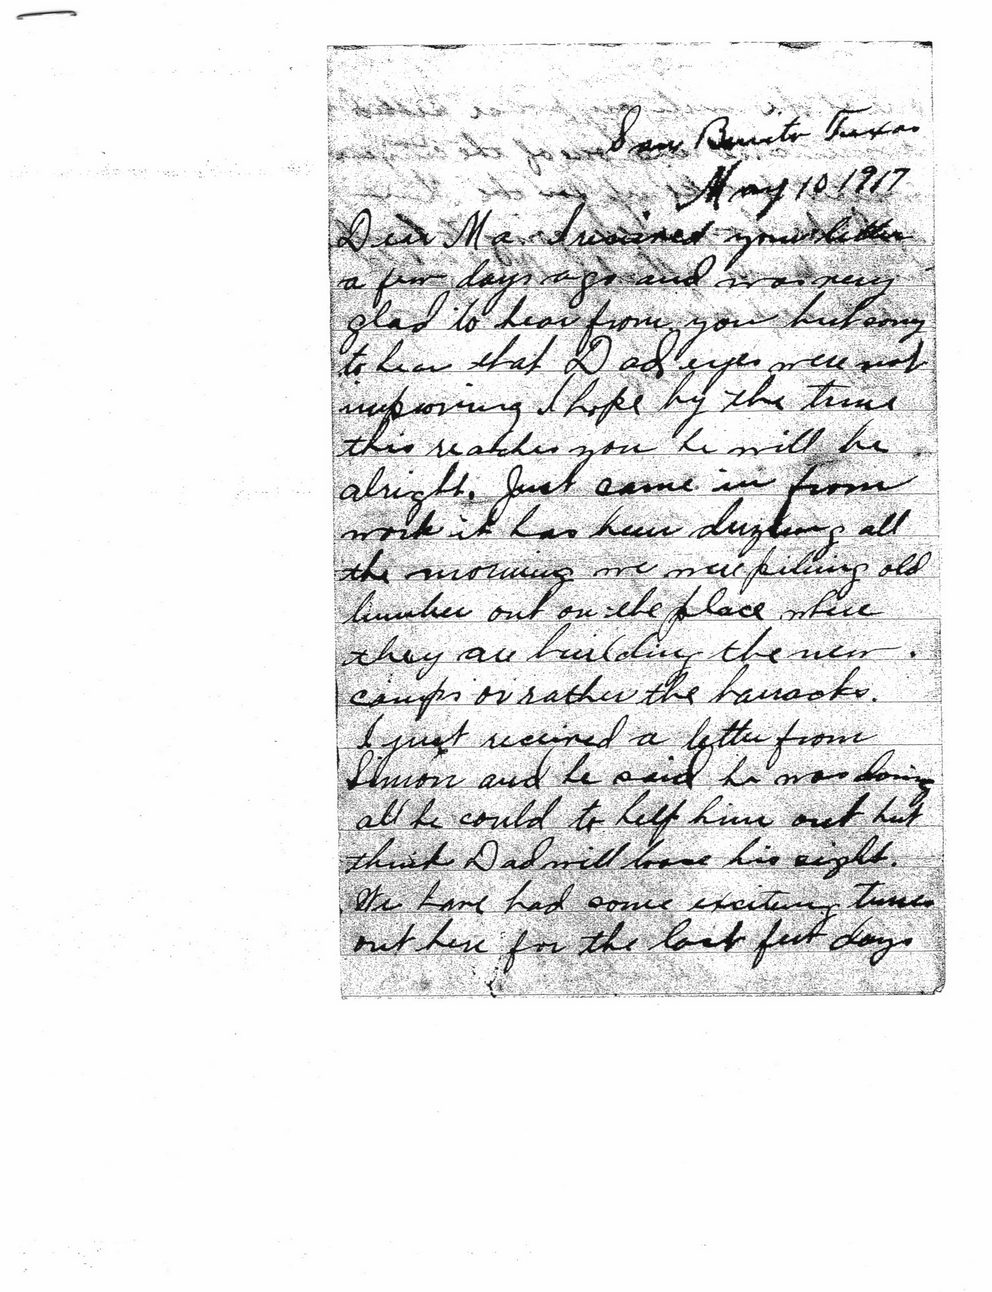 San Benito Texas
May 10 1917
Dear Ma. I received your letter
a few days ago and was very
glad to hear from you but sorry
to hear that Dad eyes were not
improving I hope by the time
this reaches you he will be
alright. Just came in from
work it has been drizling all
the morning we were pileing old
lumber out on the place where
they are building the new
camps or rather the barracks.
I just received a letter from
Simon and he said he was doing
all he could to help him out but
think Dad will loose his sight.
We have had some exciting times
out here for the last few days